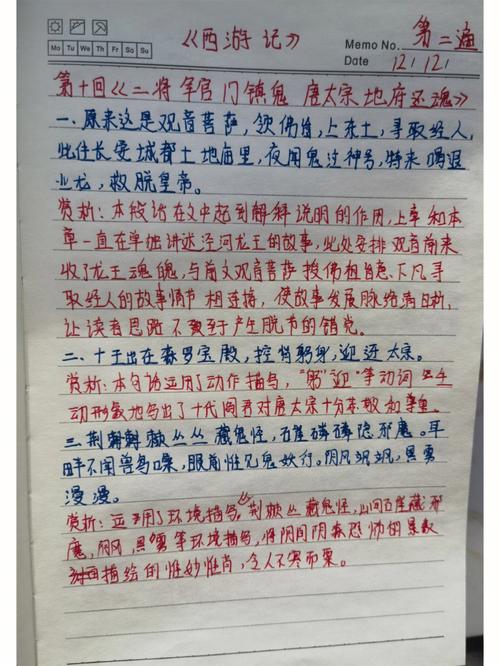 《西游记》 Memo No. 第二遍
Mo Tu We Th Fr Sa Su Date 12/12/
第十回《二将军宫门镇鬼 唐太宗地府还魂》
一、原来这是观音菩萨，领佛旨，上东土，寻取经人，
此住长安城都土地庙里，夜闻鬼泣神号，特来喝退
业龙，救脱皇帝。
赏析：本段话在文中起到解释说明的作用，上章和本
章一直在单独讲述泾河龙王的故事，此处安排观音前来
收了龙王魂魄，与前文观音菩萨授佛祖旨意、下凡寻
取经人的故事情节相连接，使故事发展脉络清晰，
让读者思路不致于产生脱节的错觉。
二、十王出在森罗宝殿，控背躬身，迎迓太宗。
赏析：本句话运用了动作描写，“躬”“迎”等动词
动形象地写出了十代阎君对唐太宗十分恭敬和尊重。
三、荆棘丛丛藏鬼怪，石崖磷磷隐邪魔。耳
畔不闻兽鸟噪，眼前惟见鬼妖行。阴风飒飒，黑雾
漫漫。
赏析：运用了环境描写，荆棘丛藏鬼怪，山间石崖藏邪
魔，阴风，黑雾等环境描写，将阴间阴森恐怖的景致
描绘的惟妙惟肖，令人不寒而栗。